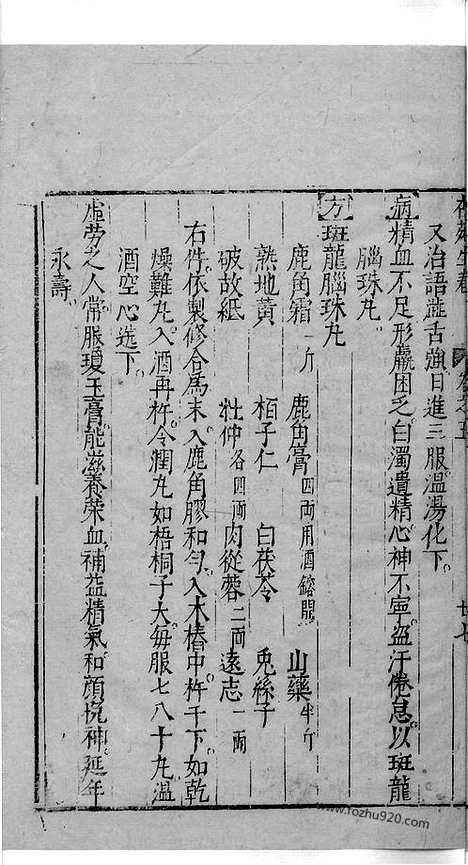 又治語澁舌強日進三服溫湯化下。
【病】精血不足形羸困乏。白濁遺精心神不寧盜汗倦怠以斑龍
腦珠丸
【方】斑龍腦珠丸
鹿角霜一斤 鹿角膏四兩用酒鎔開 山藥半斤
熟地黃 栢子仁 白茯苓 兎絲子
破故紙 杜仲各四兩 肉從蓉二兩 遠志一兩
右件依製修合爲末入鹿角膠和勻入木樁中杵千下如乾
燥難丸入酒再杵令潤丸如梧桐子大每服七八十丸溫
酒空心送下。
虛勞之人常服瓊玉膏能滋養荣血補益精氣和顏恱神延年
永壽。
廿七
www.fozhu920.com